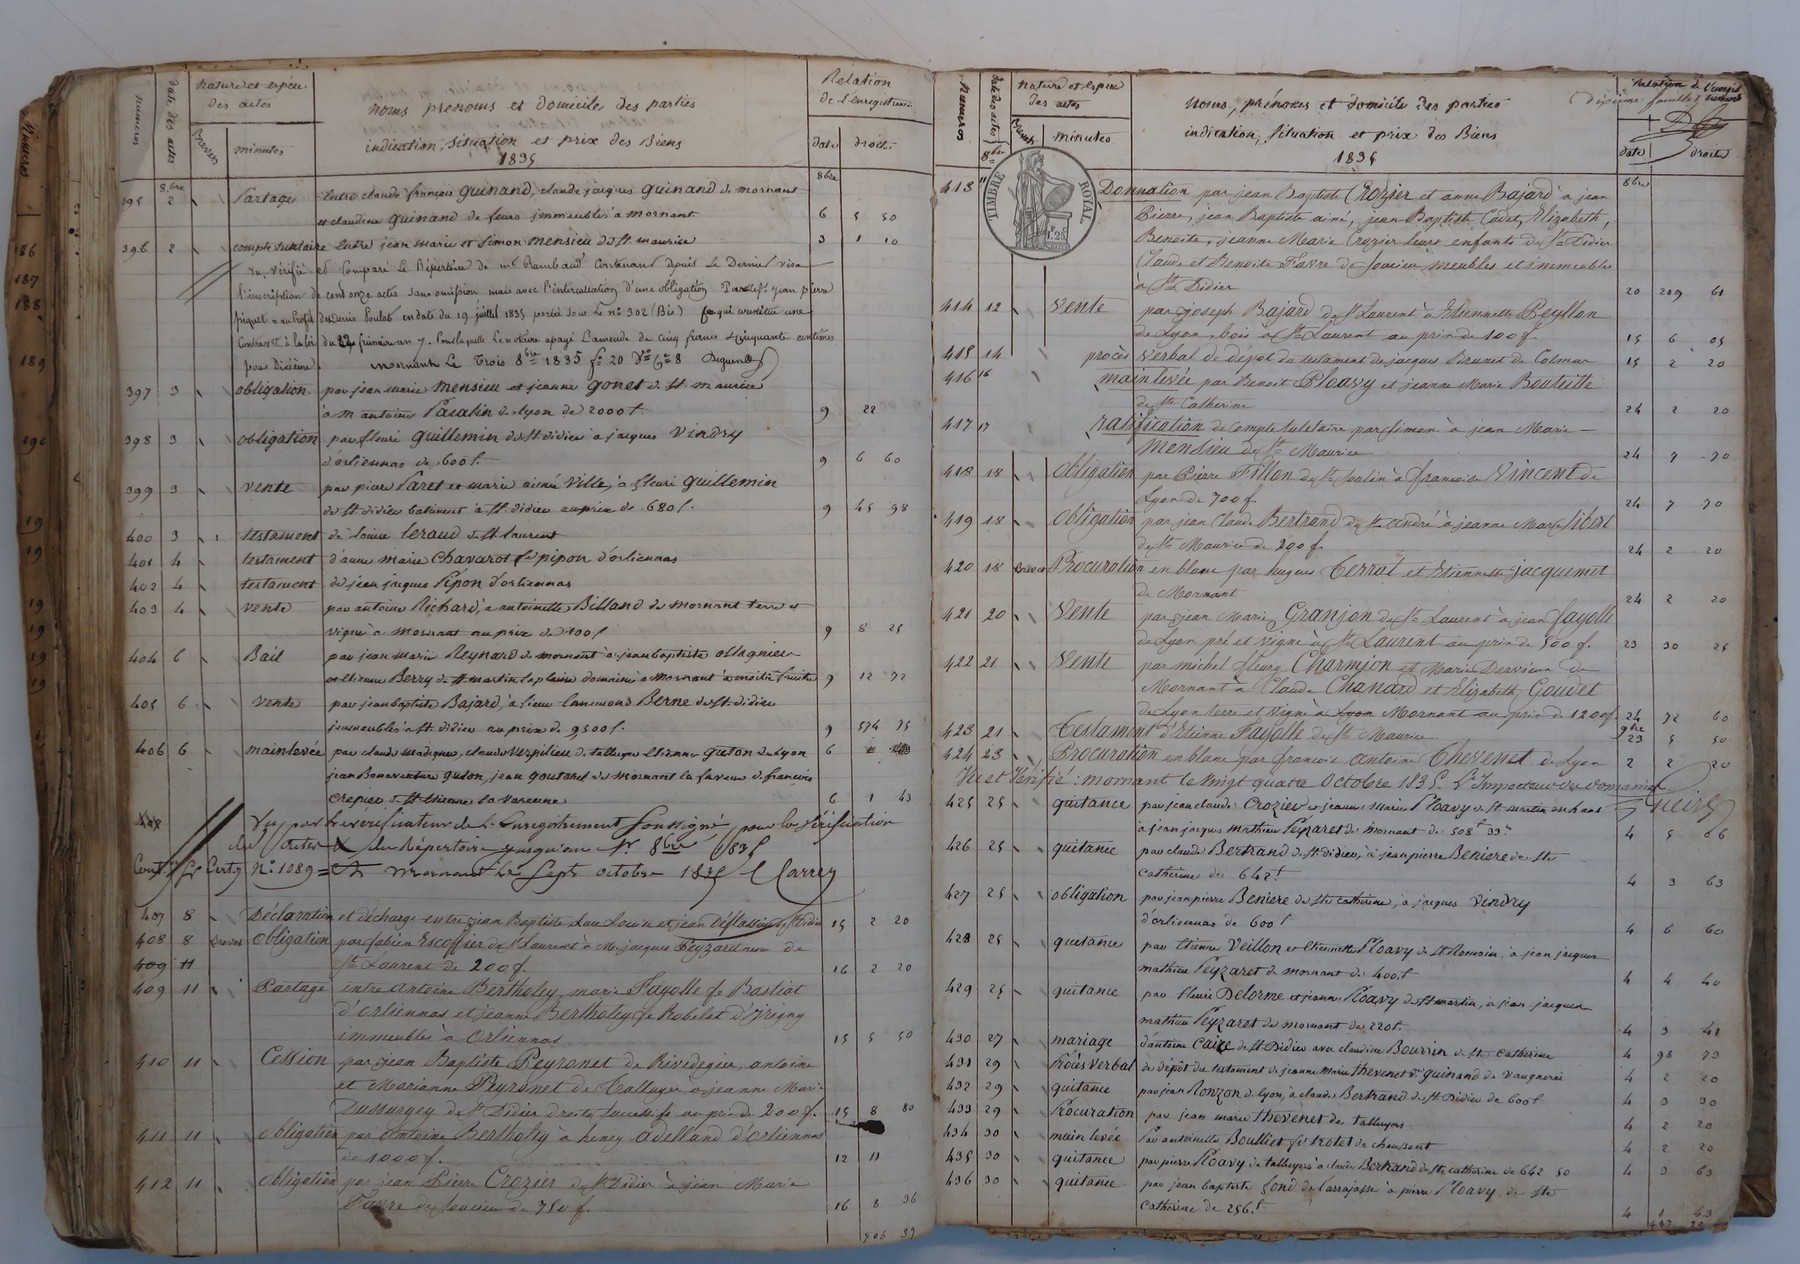 numeros
date des actes
nature et espèce
des actes
Brevets
minutes
noms prenoms et domicile des parties
indication, situation et prix des Biens
1835
Relation
de l'enregistrement
date
droits
8bre
8bre
395 2 Partage entre claude françois Guinand, claude jacques Guinand de mornant
et claudine Guinand de leurs immeubles à mornant 6 5 50
396 2 compte tutelaire entre jean marie et Simon mensieu de St maurice 3 1 10
Vu, vérifié et Comparé le Répertoire de me Rambaud Contenant depuis le Dernier visa
l'inscription de cent onze actes sans omission mais avec l'intercallation d'une obligation jean pierre
piquet au profit de Denis Poulat en date du 19 juillet 1835 porté sous le no 302 (Bis) ce qui constitue une
Contravon à la loi du 22 frimaire an 7. Pour laquelle le notaire a payé l'amende de cinq francs cinquante centimes
pour Dixième. mornant Le Trois 8bre 1835 fo 20 Vo Ce 8
397 3 obligation par jean marie mensieu et jeanne gonet de St maurice
à m antoine de Lyon de 2000 f. 9 22
398 3 obligation par fleuri Guillemin de St didier à jacques Vindry
d'orliennas de 600 f. 9 6 60
399 3 vente par pierre Paret et marie aimée Ville, à fleuri Guillemin
de St didier batiment à St didier au prix de 680 f. 9 45 98
400 3 testament de louise leraud de St laurent
401 4 testament d'anne marie Chavarot fe pipon d'orliennas
402 4 testament de jean jacques Pipon d'orliennas
403 4 vente par antoine Richard, à antoinette Billand de mornant terre et
vigne à mornant au prix de 100 f 9 8 25
404 6 Bail par jean marie Reynard de mornant à jean baptiste ollagnier
et etienne Berry de St martin la plaine domaine à Mornant à moitié fruits 9 12 72
405 6 vente par jean baptiste Bajard, à sieur Berne de St didier
immeubles à St didier au prix de 9500 f. 9 574 75
406 6 mainlevée par claude madignier, claude verpilieu de talluyer etienne guton de Lyon
jean Bonaventure guton, jean goutarel de mornant la faveur de francois
crepier de St etienne la varenne 6 1 43
Vu par le verificateur de l'enregistrement soussigné pour la vérification
du Répertoire jusqu'au 1er 8bre 1835
no 1089 mornant le sept octobre 1835 Carrey
407 8 Déclaration et décharge entre jean Baptiste et jean de St Didier 15 2 20
408 8 Brevet obligation par fabien Escoffier de St Laurent à Mr jacques Peyzaret de
409 11 St Laurent de 200 f. 16 2 20
409 11 Partage entre Antoine Bertholey, marie Fayolle fe Bastiat
d'orliennas et jeanne Bertholey fe Robelet d'Irigny
immeubles à orliennas 15 5 50
410 11 Cession par jean Baptiste Peyronet de Rivedegier, antoine
et Marianne Peyronet de Talluyer à jeanne Marie
Dussurgey de St Didier droits successifs au prix de 200 f. 15 8 80
411 11 obligation par Antoine Bertholey à henry adelland d'orliennas
de 1000 f. 12 11
412 11 obligation par jean Pierre Crozier de St Didier à jean Marie
Favre de soucieu de 750 f. 16 8 36
706 37
numeros
date des actes
nature et espèce
des actes
Brevets
minutes
noms, prénoms et domicile des parties
indication, situation et prix des Biens
1835
Relation de l'enregist
dixieme feuillet
date
droits
8bre
8bre
TIMBRE ROYAL
1f.25c
413 11 Donnation par jean Baptiste Crozier et anne Bajard à jean
Pierre, jean Baptiste ainé, jean Baptiste Cadet, Elizabeth,
Benoite, jeanne Marie Crozier leurs enfants de St Didier
Claude et Benoite Favre de soucieu meubles et immeubles
à St Didier 20 209 61
414 12 vente par joseph Bajard de St Laurent à Etiennette Peyllon
de Lyon, bois à St Laurent au prix de 100 f. 15 6 05
415 14 procès verbal de depot du testament de jacques Brunet de Colmar 15 2 20
416 16 mainlevée par Benoit Ploavy et jeanne Marie Bouteille
de Ste Catherine 24 2 20
417 17 ratification de compte tutelaire par Simon à jean Marie
Mensieu de St Maurice 24 7 70
418 18 obligation par Pierre Fillon de St Sorlin à francoise Vincent de
Lyon de 700 f. 24 7 70
419 18 obligation par jean Claude Bertrand de St andré à jeanne Marie Sibert
de St Maurice de 200 f. 24 2 20
420 18 Brevet Procuration en blanc par hugues Terrat et Etiennette jacquemet
de Mornant 24 2 20
421 20 Vente par jean Marie Granjon de St Laurent à jean Fayolle
de Lyon pré et vigne à St Laurent au prix de 500 f. 23 30 25
422 21 Vente par michel fleury Charmjon et Marie Dervieux de
Mornant à Claude Chanard et Elizabeth Goudet
de Lyon terre et vigne à Lyon Mornant au prix de 1200 f. 24 72 60
9bre
423 21 Testament d'Etienne Fayolle de St Maurice 23 5 50
424 23 Procuration en blanc par francois Antoine Thevenet de Lyon 2 2 20
Vu et Vérifié: mornant le vingt quatre octobre 1835. L'Inspecteur des domaines
425 25 quitance par jean claude Crozier et jeanne marie Ploavy de St martin en haut
à jean jacques mathieu Peyzaret de mornant de 508 f 33 c 4 5 66
426 25 quitance par claude Bertrand de St didier, à jean pierre Beniere de Ste
catherine de 642 f 4 3 63
427 25 obligation par jean pierre Beniere de Ste catherine, à jacques Vindry
d'orliennas de 600 f 4 6 60
428 25 quitance par Etienne Veillon et etiennette Ploavy de St Romain, à jean jacques
mathieu Peyzaret de mornant de 400 f 4 4 40
429 25 quitance par fleuri Delorme et jeanne Ploavy de St martin, à jean jacques
mathieu Peyzaret de mornant de 220 f. 4 3 41
430 27 mariage d'antoine Caire de St Didier avec claudine Bourrin de St Catherine 4 98 73
431 29 Procès verbal de dépôt du testament de jeanne marie thevenet ve guinand de vaugneray 4 2 20
432 29 quitance par jean Ronzon de Lyon, à claude Bertrand de St Didier de 600 f 4 3 30
433 29 Procuration par jean marie thevenet de talluyers 4 2 20
434 30 main levée Par antoinette Boulliet fe trotet de chaussant 4 2 20
435 30 quitance par pierre Ploavy de talluyers à claude Bertrand de Ste catherine de 642 50 4 3 63
436 30 quitance par jean baptiste fond de Larrajasse à pierre Ploavy de Ste
Catherine de 256 f. 4 1 43
186
187
188
189
190
19
19
19
19
19
19